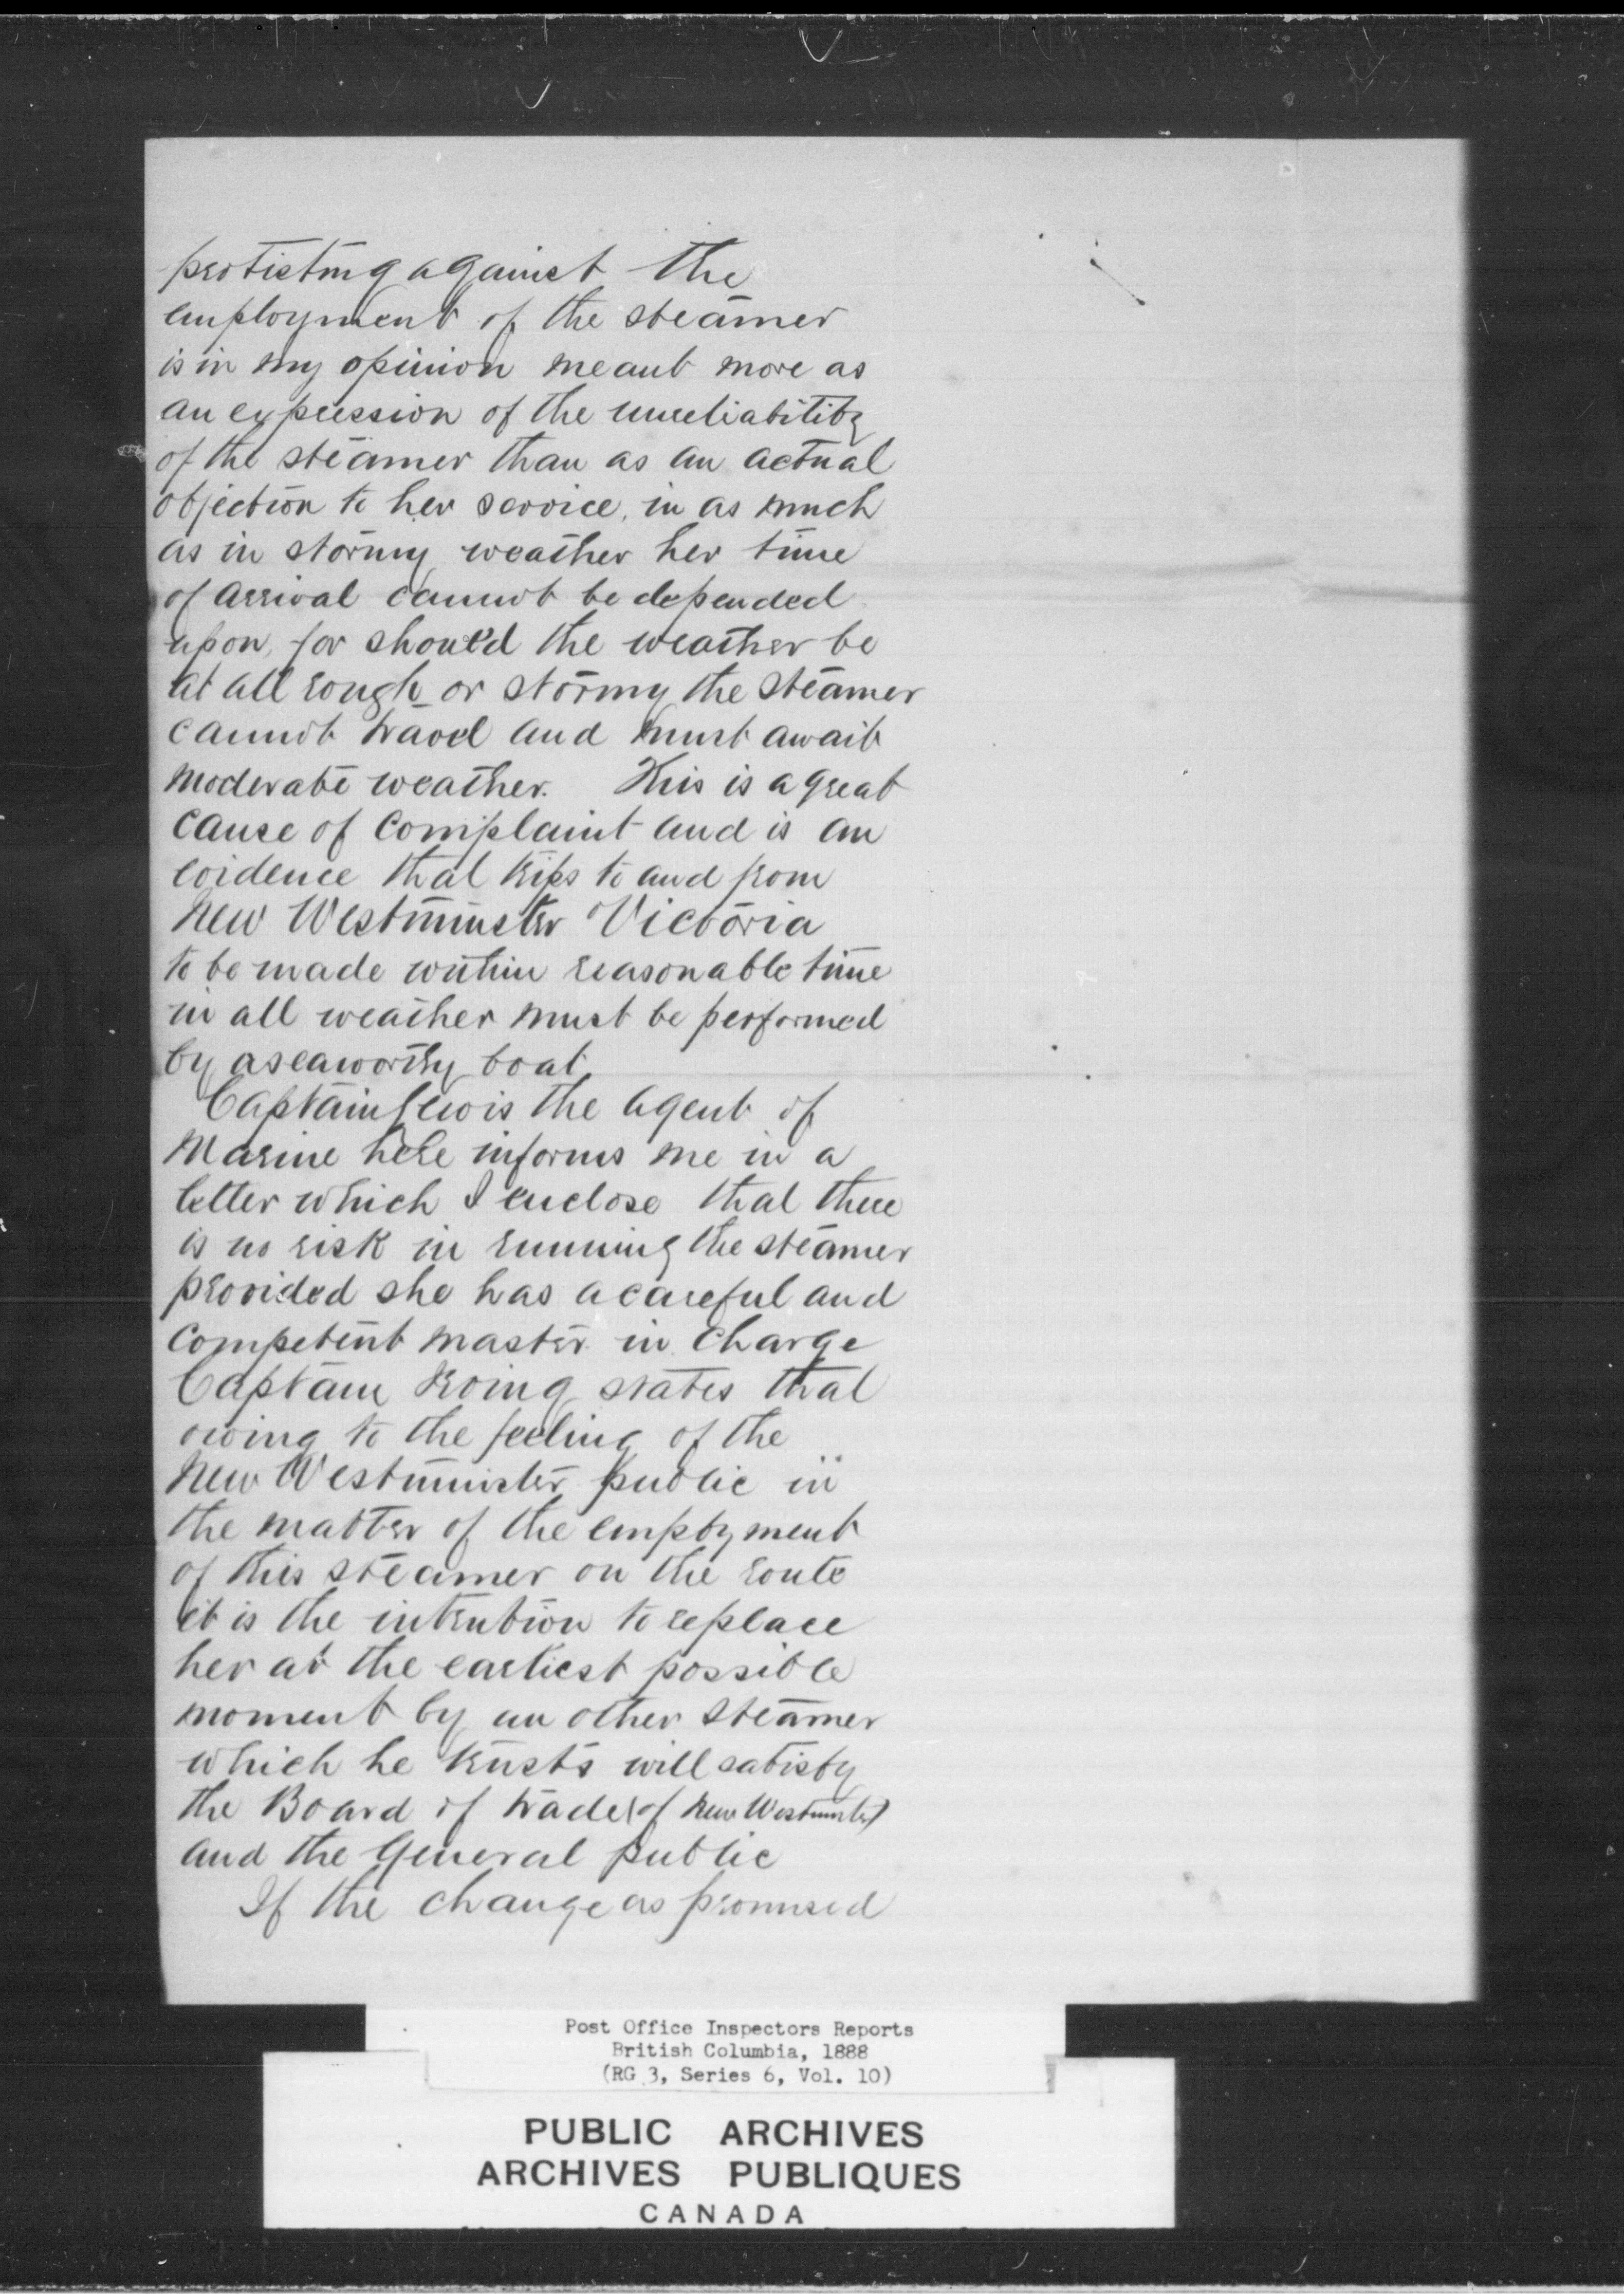 protesting against the
employment of the steamer
is in my opinion meant more as
an expression of the unreliability
of the steamer than as an actual
objection to her service, in as much
as in stormy weather her time
of arrival cannot be depended
upon, for should the weather be
at all rough or stormy the steamer
cannot travel and must await
moderate weather. This is a great
cause of complaint and is an
evidence that trips to and from
New Westminster Victoria
to be made within reasonable time
in all weather must be performed
by a seaworthy boat.
Captain Lewis the agent of
Marine here informs me in a
letter which I enclose that there
is no risk in running the steamer
provided she has a careful and
competent master in charge
Captain Irving states that
owing to the feeling of the
New Westminster public in
the matter of the employment
of this steamer on the route
it is the intention to replace
her at the earliest possible
moment by an other steamer
which he trusts will satisfy
the Board of trade (of New Westminster)
and the General public
If the change as promised
Post Office Inspectors Reports
British Columbia, 1888
(RG 3, Series 6, Vol. 10)
PUBLIC ARCHIVES
ARCHIVES PUBLIQUES
CANADA